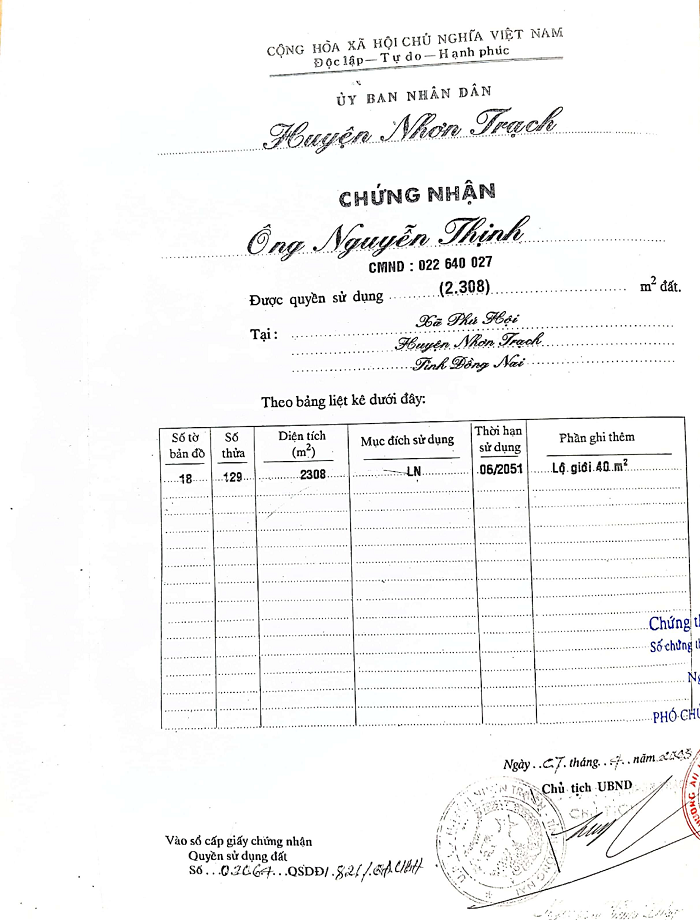 CỘNG HÒA XÃ HỘI CHỦ NGHĨA VIỆT NAM
Độc lập — Tự do — Hạnh phúc
ỦY BAN NHÂN DÂN
Huyện Nhơn Trạch
CHỨNG NHẬN
Ông Nguyễn Thịnh
CMND : 022 640 027
Được quyền sử dụng (2.308) m² đất.
Tại : Xã Phú Hội
Huyện Nhơn Trạch
Tỉnh Đồng Nai
Theo bảng liệt kê dưới đây:
Số tờ bản đồ Số thửa Diện tích (m²) Mục đích sử dụng Thời hạn sử dụng Phần ghi thêm
18 129 2308 LN 06/2051 Lộ giới 40 m²
Chứng t
Số chứng t
PHÓ CH
Ngày 07 tháng 7 năm 2003
Chủ tịch UBND
Vào sổ cấp giấy chứng nhận
Quyền sử dụng đất
Số QSDĐ/